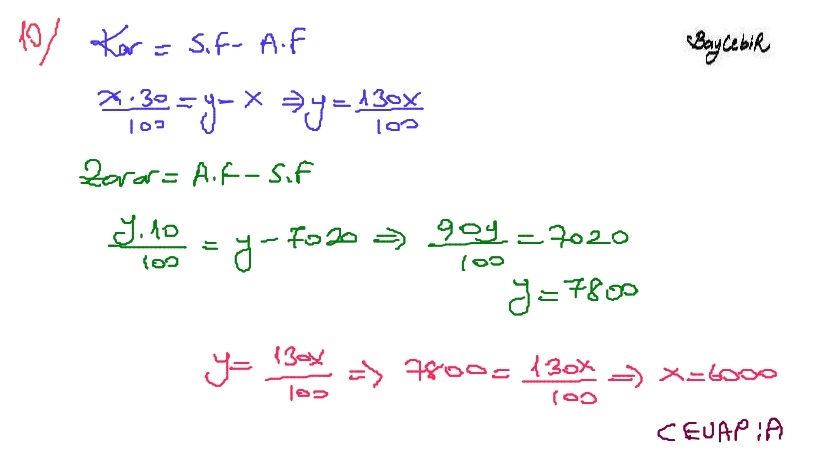 10/ Kar = S.F - A.F
BayCebiR
x.30/100 = y - x ⇒ y = 130x/100
Zarar = A.F - S.F
y.10/100 = y - 7020 ⇒ 90y/100 = 7020
y = 7800
y = 130x/100 ⇒ 7800 = 130x/100 ⇒ x = 6000
CEVAP:A